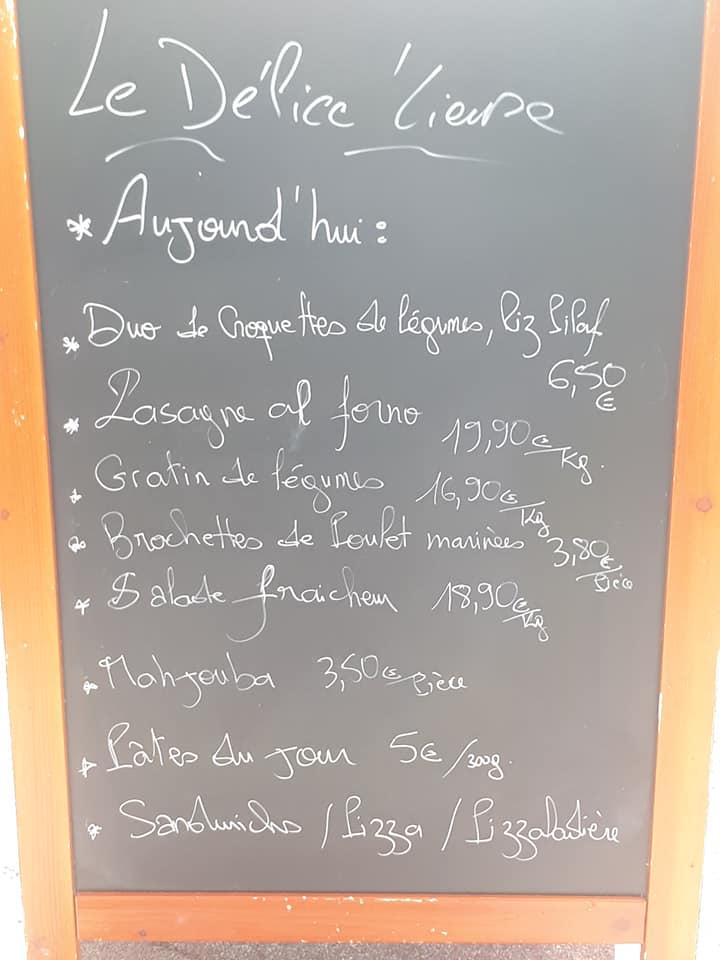 Le Délice 'Cieuse
* Aujourd'hui :
* Duo de Croquettes de légumes, Riz Pilaf
6,50 €
* Lasagne al forno 19,90 €/Kg.
* Gratin de légumes 16,90 €/Kg
* Brochettes de Poulet marinées 3,80 €/pièce
* Salade fraicheur 18,90 €/Kg
* Mahjouba 3,50 €/pièce
* Pâtes du jour 5€/300g.
* Sandwichs / Pizza / Pizzaladière